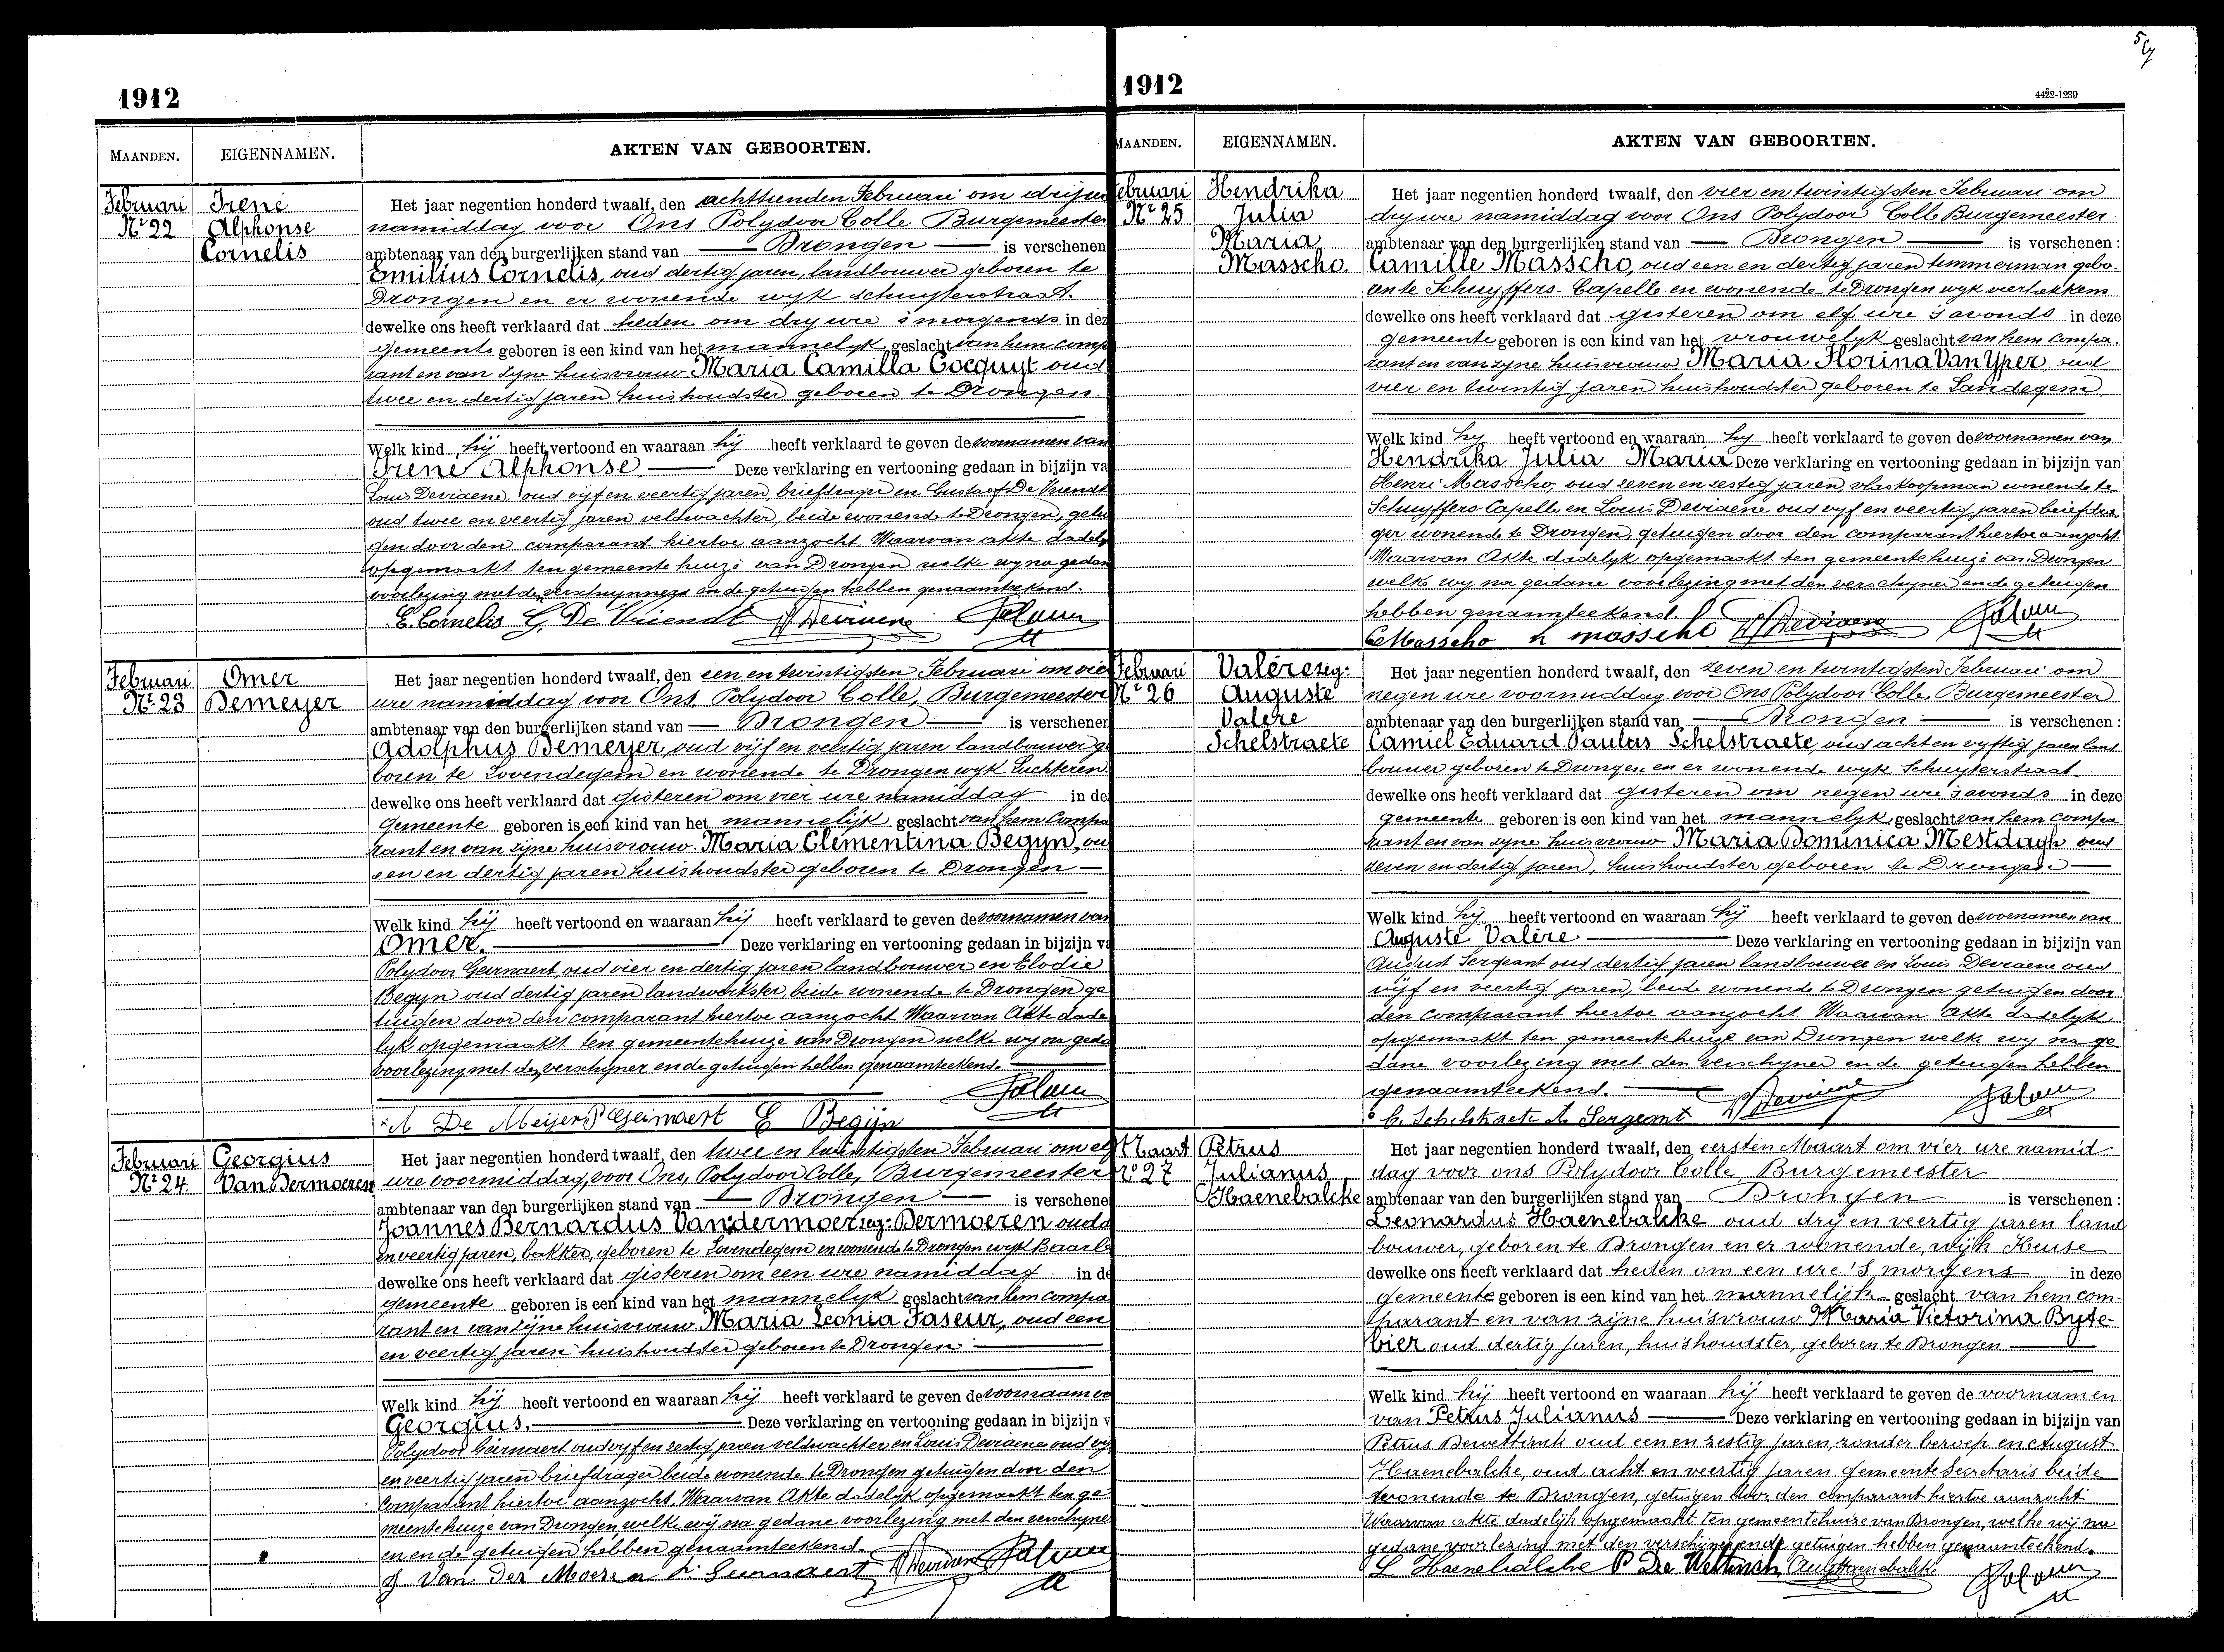 1912
MAANDEN. EIGENNAMEN. AKTEN VAN GEBOORTEN.
Februari
Nr 22
Irené
Alphonse
Cornelis
Het jaar negentien honderd twaalf, den achttienden Februari om drij ure
namiddag voor Ons Polydoor Colle Burgemeester
ambtenaar van den burgerlijken stand van — Drongen — is verschenen
Emilius Cornelis, oud dertig jaren, landbouwer geboren te
Drongen en er wonende wijk Schuyterstraat.
dewelke ons heeft verklaard dat heden om dry ure 's morgends in dez
gemeente geboren is een kind van het mannelyk geslacht van hem comp
rant en van zyne huisvrouw Maria Camilla Cocquyt oud
twee en dertig jaren huishoudster geboren te Drongen.
Welk kind hij heeft vertoond en waaraan hij heeft verklaard te geven de voornamen van
Irené Alphonse — Deze verklaring en vertooning gedaan in bijzijn va
Louis Deviaene, oud vijf en veertig jaren, briefdrager en Gustaaf De Vriendt
oud twee en veertig jaren veldwachter, beide wonende te Drongen, getui
gen door den comparant hiertoe aanzocht Waarvan akte dadely
opgemaakt ten gemeentehuize van Drongen welke wy na gedan
voorlezing met de verschynners en de getuigen hebben genaamteekend.
E. Cornelis G. De Vriendt Deviaene
Februari
Nr 23
Omer
Demeyer
Het jaar negentien honderd twaalf, den een en twintigsten Februari om vier
ure namiddag voor Ons, Polydoor Colle, Burgemeester
ambtenaar van den burgerlijken stand van — Drongen — is verschenen
Adolphus Demeyer, oud vijf en veertig jaren landbouwer ge
boren te Lovendegem en wonende te Drongen wyk Luchteren
dewelke ons heeft verklaard dat gisteren om vier ure namiddag in de
gemeente geboren is een kind van het mannelijk geslacht van hem compa
rant en van zijne huisvrouw Maria Clementina Begyn, ou
een en dertig jaren huishoudster geboren te Drongen —
Welk kind hij heeft vertoond en waaraan hij heeft verklaard te geven de voornamen van
Omer. — Deze verklaring en vertooning gedaan in bijzijn va
Polydoor Geirnaert, oud vier en dertig jaren landbouwer en Elodie
Begyn oud dertig jaren landwerkster, beide wonende te Drongen ge
tuigen door den comparant hiertoe aanzocht Waarvan Akte dade
lyk opgemaakt ten gemeentehuize van Drongen welke wy na geda
voorlezing met den verschyner en de getuigen hebben genaamteekend.
A De Meijer P Geirnaert E Begijn
Februari
Nr 24
Georgius
Van Dermoeren
Het jaar negentien honderd twaalf, den twee en twintigsten Februari om el
ure voormiddag, voor Ons, Polydoor Colle, Burgemeester
ambtenaar van den burgerlijken stand van — Drongen — is verschene
Joannes Bernardus Vandermoer zeg: Dermoeren oud
en veertig jaren, bakker, geboren te Lovendegem en wonende te Drongen wyk Baarle
dewelke ons heeft verklaard dat gisteren om een ure namiddag in de
gemeente geboren is een kind van het mannelyk geslacht van hem compa
rant en van zijne huisvrouw Maria Leonia Faseur, oud een
en veertig jaren huishoudster geboren te Drongen —
Welk kind hij heeft vertoond en waaraan hij heeft verklaard te geven de voornaam va
Georgius. — Deze verklaring en vertooning gedaan in bijzijn v
Polydoor Geirnaert oud vyf en zestig jaren veldwachter en Louis Deviaene oud vy
en veertig jaren briefdrager beide wonende te Drongen getuigen door den
comparant hiertoe aanzocht. Waarvan Akte dadelyk opgemaakt ten ge
meentehuize van Drongen, welke wij na gedane voorlezing met den verschyne
en en de getuigen hebben genaamteekend.
J Van Der Moeren Geirnaert Deviaene
1912
4422-1239
MAANDEN. EIGENNAMEN. AKTEN VAN GEBOORTEN.
Februari
Nr 25
Hendrika
Julia
Maria
Masscho
Het jaar negentien honderd twaalf, den vier en twintigsten Februari om
dry ure namiddag voor Ons Polydoor Colle Burgemeester
ambtenaar van den burgerlijken stand van — Drongen — is verschenen :
Camille Masscho, oud een en dertig jaren timmerman gebo.
ren te Schuyffers-Capelle en wonende te Drongen wyk vierhekkens
dewelke ons heeft verklaard dat gisteren om elf ure 's avonds in deze
gemeente geboren is een kind van het vrouwelyk geslacht van hem compa.
rant en van zyne huisvrouw Maria Florina Van Yper oud
vier en twintig jaren huishoudster geboren te Landegem
Welk kind hy heeft vertoond en waaraan hy heeft verklaard te geven de voornamen van
Hendrika Julia Maria Deze verklaring en vertooning gedaan in bijzijn van
Henri Masscho, oud zeven en zestig jaren, vlaskoopman wonende te
Schuyffers Capelle en Louis Deviaene oud vyf en veertig jaren briefdra
ger wonende te Drongen, getuigen door den comparant hiertoe aanzocht.
Waarvan Akte dadelyk opgemaakt ten gemeentehuize van Drongen
welke wy na gedane voorlezing met den verschyner en de getuigen
hebben genaamteekend.
C Masscho h masscho Deviaene
Februari
Nr 26
Valére zeg:
Auguste
Valére
Schelstraete
Het jaar negentien honderd twaalf, den zeven en twintigsten Februari om
negen ure voormiddag voor Ons Polydoor Colle, Burgemeester
ambtenaar van den burgerlijken stand van — Drongen — is verschenen :
Camiel Eduard Paulus Schelstraete, oud acht en vyftig jaren land
bouwer geboren te Drongen en er wonende wyk Schuyterstraat.
dewelke ons heeft verklaard dat gisteren om negen ure 's avonds in deze
gemeente geboren is een kind van het mannelyk geslacht van hem compa
rant en van zyne huisvrouw Maria Dominica Mestdagh oud
zeven en dertig jaren, huishoudster geboren te Drongen —
Welk kind hij heeft vertoond en waaraan hij heeft verklaard te geven de voornamen van
Auguste Valére — Deze verklaring en vertooning gedaan in bijzijn van
August Sergeant oud dertig jaren landbouwer en Louis Deviaene oud
vijf en veertig jaren, beide wonende te Drongen getuigen door
den comparant hiertoe aanzocht Waarvan Akte dadelyk
opgemaakt ten gemeentehuize van Drongen welke wy na ge
dane voorlezing met den verschyner en de getuigen hebben
genaamteekend. —
C. Schelstraete A Sergeant Deviaene
Maart
Nr 27
Petrus
Julianus
Haenebalcke
Het jaar negentien honderd twaalf, den eersten Maart om vier ure namid
dag voor ons Polydoor Colle Burgemeester
ambtenaar van den burgerlijken stand van Drongen — is verschenen :
Leonardus Haenebalcke oud drij en veertig jaren land
bouwer, geboren te Drongen en er wonende, wijk Keuse
dewelke ons heeft verklaard dat heden om een ure 's morgens in deze
gemeente geboren is een kind van het mannelijk geslacht van hem com-
parant en van zijne huisvrouw Maria Victorina Byte-
bier oud dertig jaren, huishoudster, geboren te Drongen —
Welk kind hij heeft vertoond en waaraan hij heeft verklaard te geven de voornamen
van Petrus Julianus — Deze verklaring en vertooning gedaan in bijzijn van
Petrus Dewettinck oud een en zestig jaren, zonder beroep en August
Haenebalcke, oud acht en veertig jaren gemeente Secretaris beide
wonende te Drongen, getuigen door den comparant hiertoe aanzocht
Waarvan akte dadelijk opgemaakt ten gemeentehuize van Drongen, welke wij na
gedane voorlezing met den verschijner en de getuigen hebben genaamteekend.
L Haenebalcke P De Wettinck Aug Haenebalcke